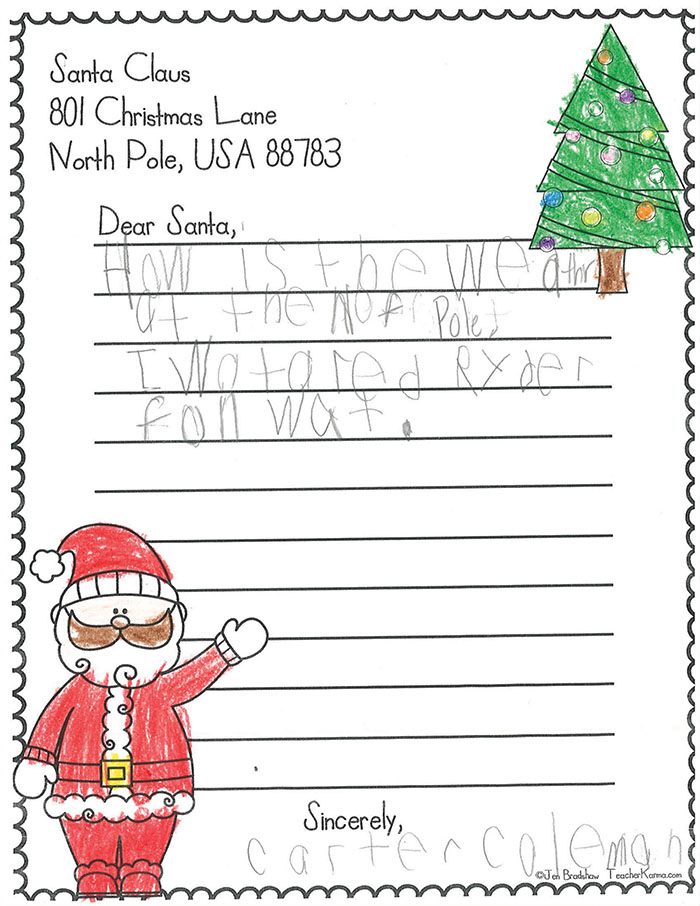 Santa Claus
801 Christmas Lane
North Pole, USA 88783
Dear Santa,
How is the weathr
at the Pole.
I Wat a red Ryder
fon wat.
Sincerely,
carter coleman
©Jen Bradshaw TeacherKarma.com